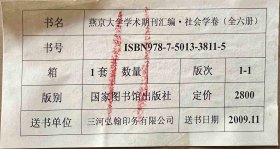 书名 燕京大学学术期刊汇编·社会学卷（全六册）
书号 ISBN978-7-5013-3811-5
箱 1套 数量 版次 1-1
版别 国家图书馆出版社 定价 2800
送书单位 三河弘翰印务有限公司 送书日期 2009.11